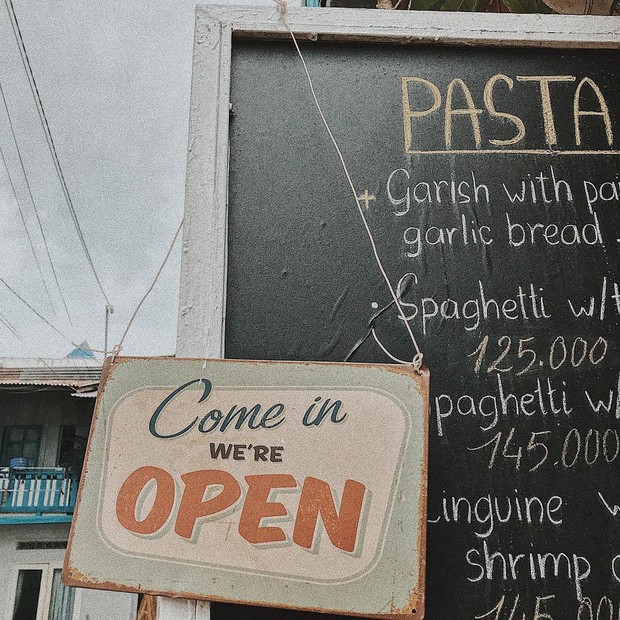 PASTA
+ Garish with pa
garlic bread
• Spaghetti w/t
125.000
paghetti w/
145.000
Linguine w
shrimp
145.00
Come in
WE'RE
OPEN